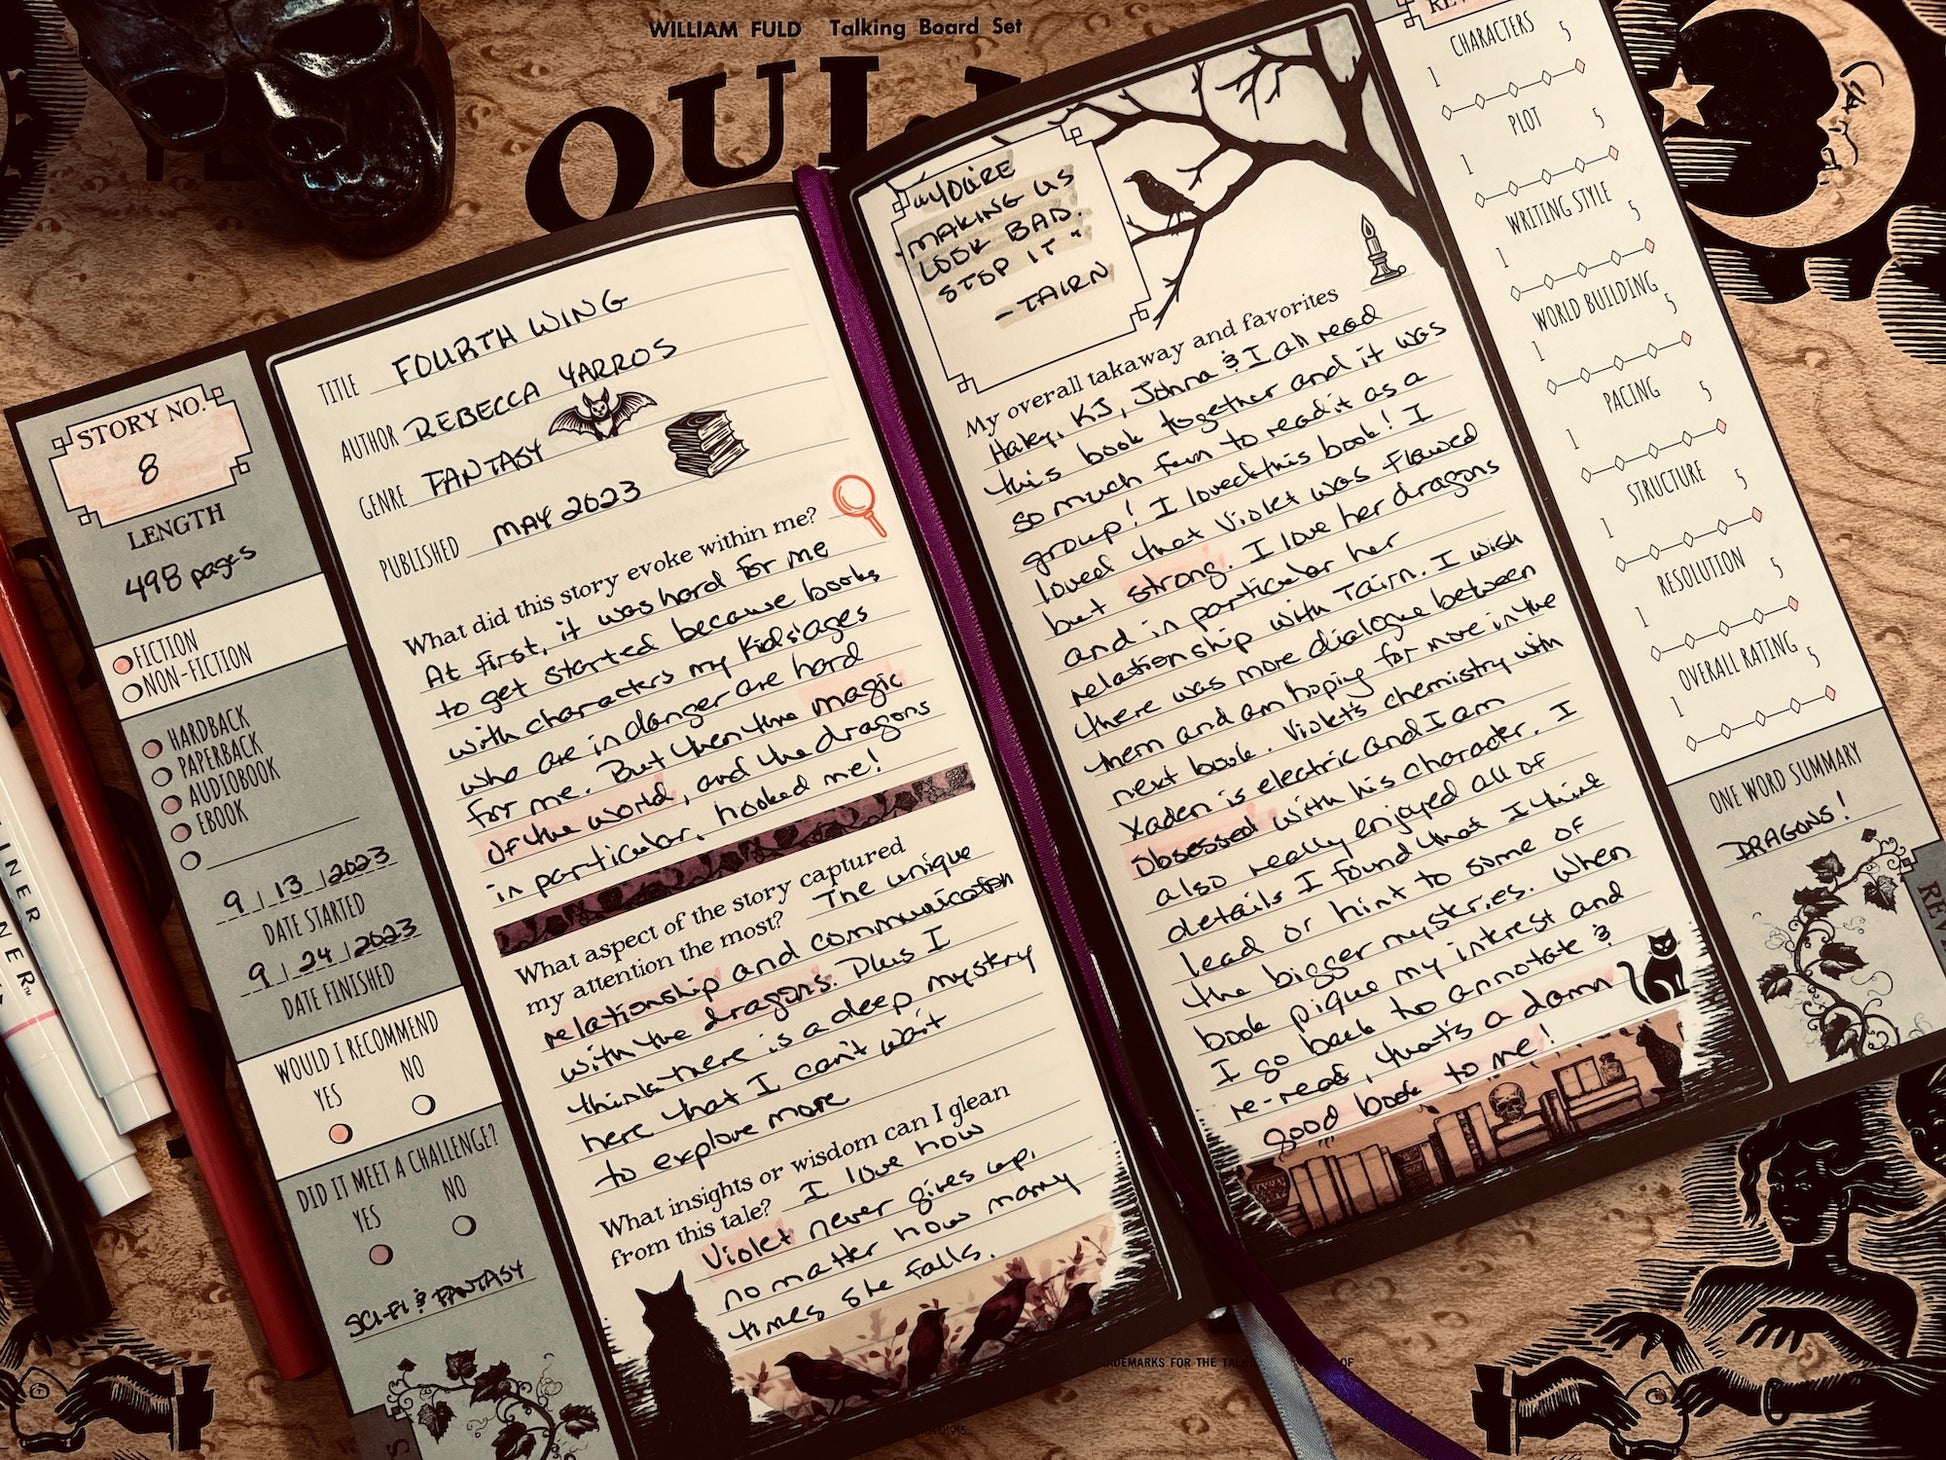 WILLIAM FULD Talking Board Set
OUIJA
STORY NO.
8
LENGTH
498 pages
FICTION
NON-FICTION
HARDBACK
PAPERBACK
AUDIOBOOK
EBOOK
9 | 13 | 2023
DATE STARTED
9 | 24 | 2023
DATE FINISHED
WOULD I RECOMMEND
YES NO
DID IT MEET A CHALLENGE?
YES NO
SCI-FI & FANTASY
TITLE FOURTH WING
AUTHOR REBECCA YARROS
GENRE FANTASY
PUBLISHED MAY 2023
What did this story evoke within me?
At first, it was hard for me
to get started because books
with characters my kids' ages
who are in danger are hard
for me. But then the magic
of the world, and the dragons
in particular, hooked me!
What aspect of the story captured
my attention the most? The unique
relationship and communication
with the dragons. Plus I
think there is a deep mystry
here that I can't wait
to explore more
What insights or wisdom can I glean
from this tale? I love how
Violet never gives up,
no matter how many
times she falls.
"YOU'RE
MAKING US
LOOK BAD.
STOP IT"
- TAIRN
My overall takaway and favorites
Haley, KJ, Johna & I all read
this book together and it was
so much fun to read it as a
group! I loved this book! I
loved that Violet was flawed
but strong. I love her dragons
and in particular her
relationship with Tairn. I wish
there was more dialogue between
them and am hoping for more in the
next book. Violet's chemistry with
Xaden is electric and I am
obsessed with his character. I
also really enjoyed all of
details I found that I think
lead or hint to some of
the bigger mysteries. When
book pique my interest and
I go back to annotate &
re-read, that's a damn
good book to me!
CHARACTERS
1 5
PLOT
1 5
WRITING STYLE
1 5
WORLD BUILDING
1 5
PACING
1 5
STRUCTURE
1 5
RESOLUTION
1 5
OVERALL RATING
1 5
ONE WORD SUMMARY
DRAGONS!